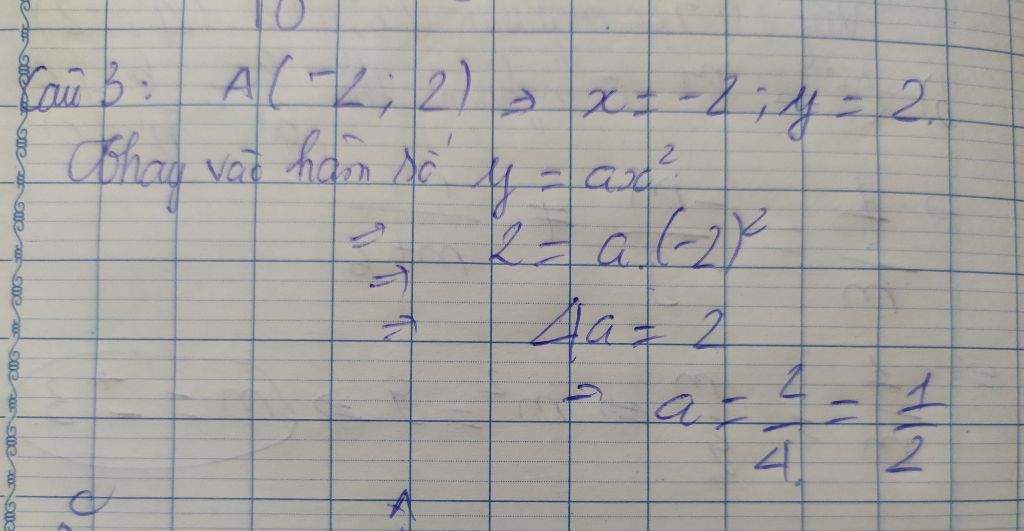 10
Câu 3: A(-2; 2) ⇒ x = -2; y = 2.
Thay vào hàm số y = ax²
⇒ 2 = a.(-2)²
⇒
⇒ 4a = 2
⇒ a = 2/4 = 1/2
A